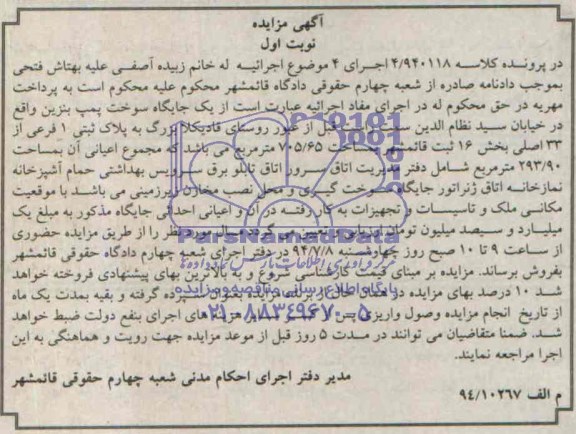 آگهی مزایده
نوبت اول
در پرونده کلاسه ۴/۹۴۰۱۱۸ اجرای ۴ موضوع اجرائیه له خانم زبیده آصفی علیه بهتاش فتحی
بموجب دادنامه صادره از شعبه چهارم حقوقی دادگاه قائمشهر محکوم علیه محکوم است به پرداخت
مهریه در حق محکوم له در اجرای مفاد اجرائیه عبارت است از یک جایگاه سوخت پمپ بنزین واقع
در خیابان سید نظام الدین قبل از عبور روستای قادیکلا بزرگ به پلاک ثبتی ۱ فرعی از
۳۳ اصلی بخش ۱۶ ثبت قائمشهر مساحت ۷۰۵/۶۵ مترمربع می باشد که مجموع اعیانی آن بمساحت
۲۹۳/۹۰ مترمربع شامل دفتر مدیریت اتاق سرور اتاق تابلو برق سرویس بهداشتی حمام آشپزخانه
نمازخانه اتاق ژنراتور جایگاه سوخت گیری و محل نصب مخازن زیرزمینی می باشد با موقعیت
مکانی ملک و تاسیسات و تجهیزات به کار رفته در آن و اعیانی احداثی جایگاه مذکور به مبلغ یک
میلیارد و سیصد میلیون تومان ارزیابی و تعیین می گردد مال مورد نظر را از طریق مزایده حضوری
از ساعت ۹ تا ۱۰ صبح روز چهارشنبه ۹۴/۷/۸ در دفتر اجرای شعبه چهارم دادگاه حقوقی قائمشهر
بفروش برساند. مزایده بر مبنای قیمت کارشناسی شروع و به بالاترین بهای پیشنهادی فروخته خواهد
شد ۱۰ درصد بهای مزایده در همان حال از برنده مزایده بعنوان سپرده گرفته و بقیه بمدت یک ماه
از تاریخ انجام مزایده وصول واریزی پس از هزینه های اجرای بنفع دولت ضبط خواهد
شد. ضمنا متقاضیان می توانند در مدت ۵ روز قبل از موعد مزایده جهت رویت و هماهنگی به این
اجرا مراجعه نمایند.
مدیر دفتر اجرای احکام مدنی شعبه چهارم حقوقی قائمشهر
م الف ۹۴/۱۰۲۶۷
ParsNamadData
پایگاه اطلاع رسانی مناقصه و مزایده
۰۲۱-۸۸۳۴۹۶۷۰-۵